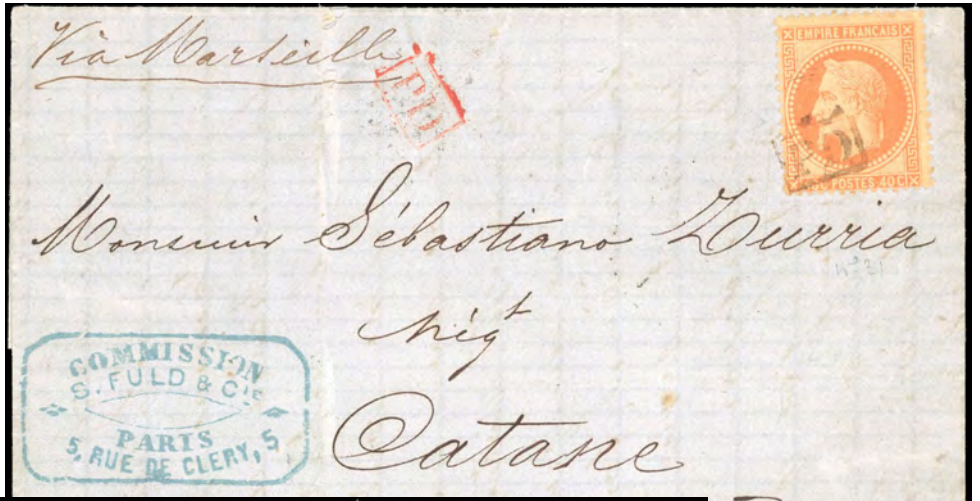 Via Marseille
PD
EMPIRE FRANÇAIS
POSTES 40 C
Monsieur Sébastiano Zurria
Nº 31
Négt
Catane
COMMISSION
S. FULD & CIE
PARIS
5, RUE DE CLERY, 5